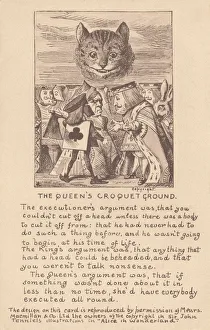 Copyright
THE QUEEN'S CROQUET GROUND.
The executioner's argument was, that you
couldn't cut off a head unless there was a body
to cut it off from: that he had never had to
do such a thing before, and he wasn't going
to begin at his time of life.
The King's argument was, that anything that
had a head could be beheaded, and that
you weren't to talk nonsense.
The Queen's argument was, that if
something wasn't done about it in
less than no time, she'd have everybody
executed all round.
The design on this card is reproduced by permission of Messrs.
Macmillan & Co. Ltd the owners of the copyright in Sir John
Tenniel's illustrations to "Alice in Wonderland".